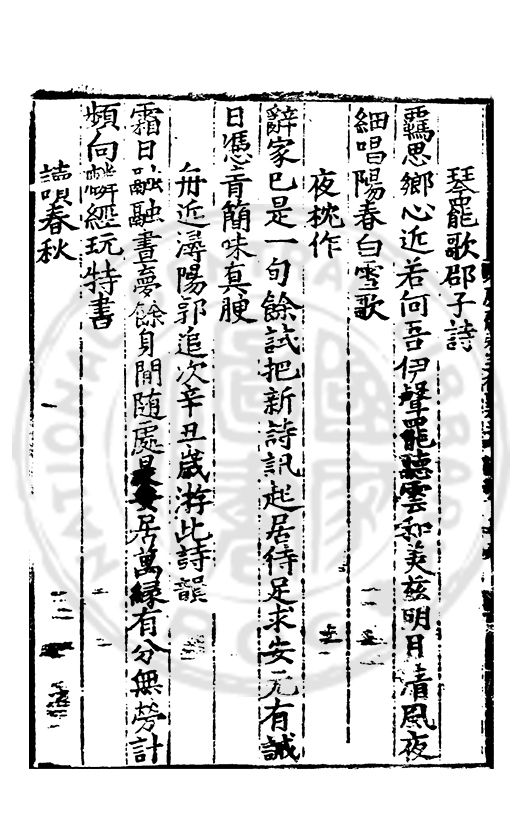 琴罷歌邵子詩
羈思鄉心近若何吾伊聲罷聽雲和羙兹明月清風夜
細唱陽春白雪歌
夜枕作
辭家巳是一旬餘試把新詩訊起居侍足求安元有誡
日憑青簡味真腴
舟近潯陽郭追次辛丑歲游此詩韻
霜日融融晝夢餘身閒随處是安居萬緣有分無勞計
頻向麟經玩特書
讀春秋